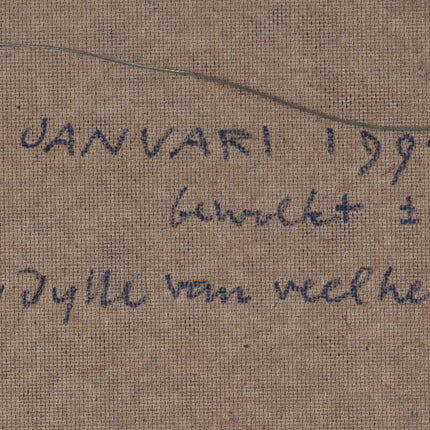 JANUARI 199
bewolkt ±
Idylle van veelhe